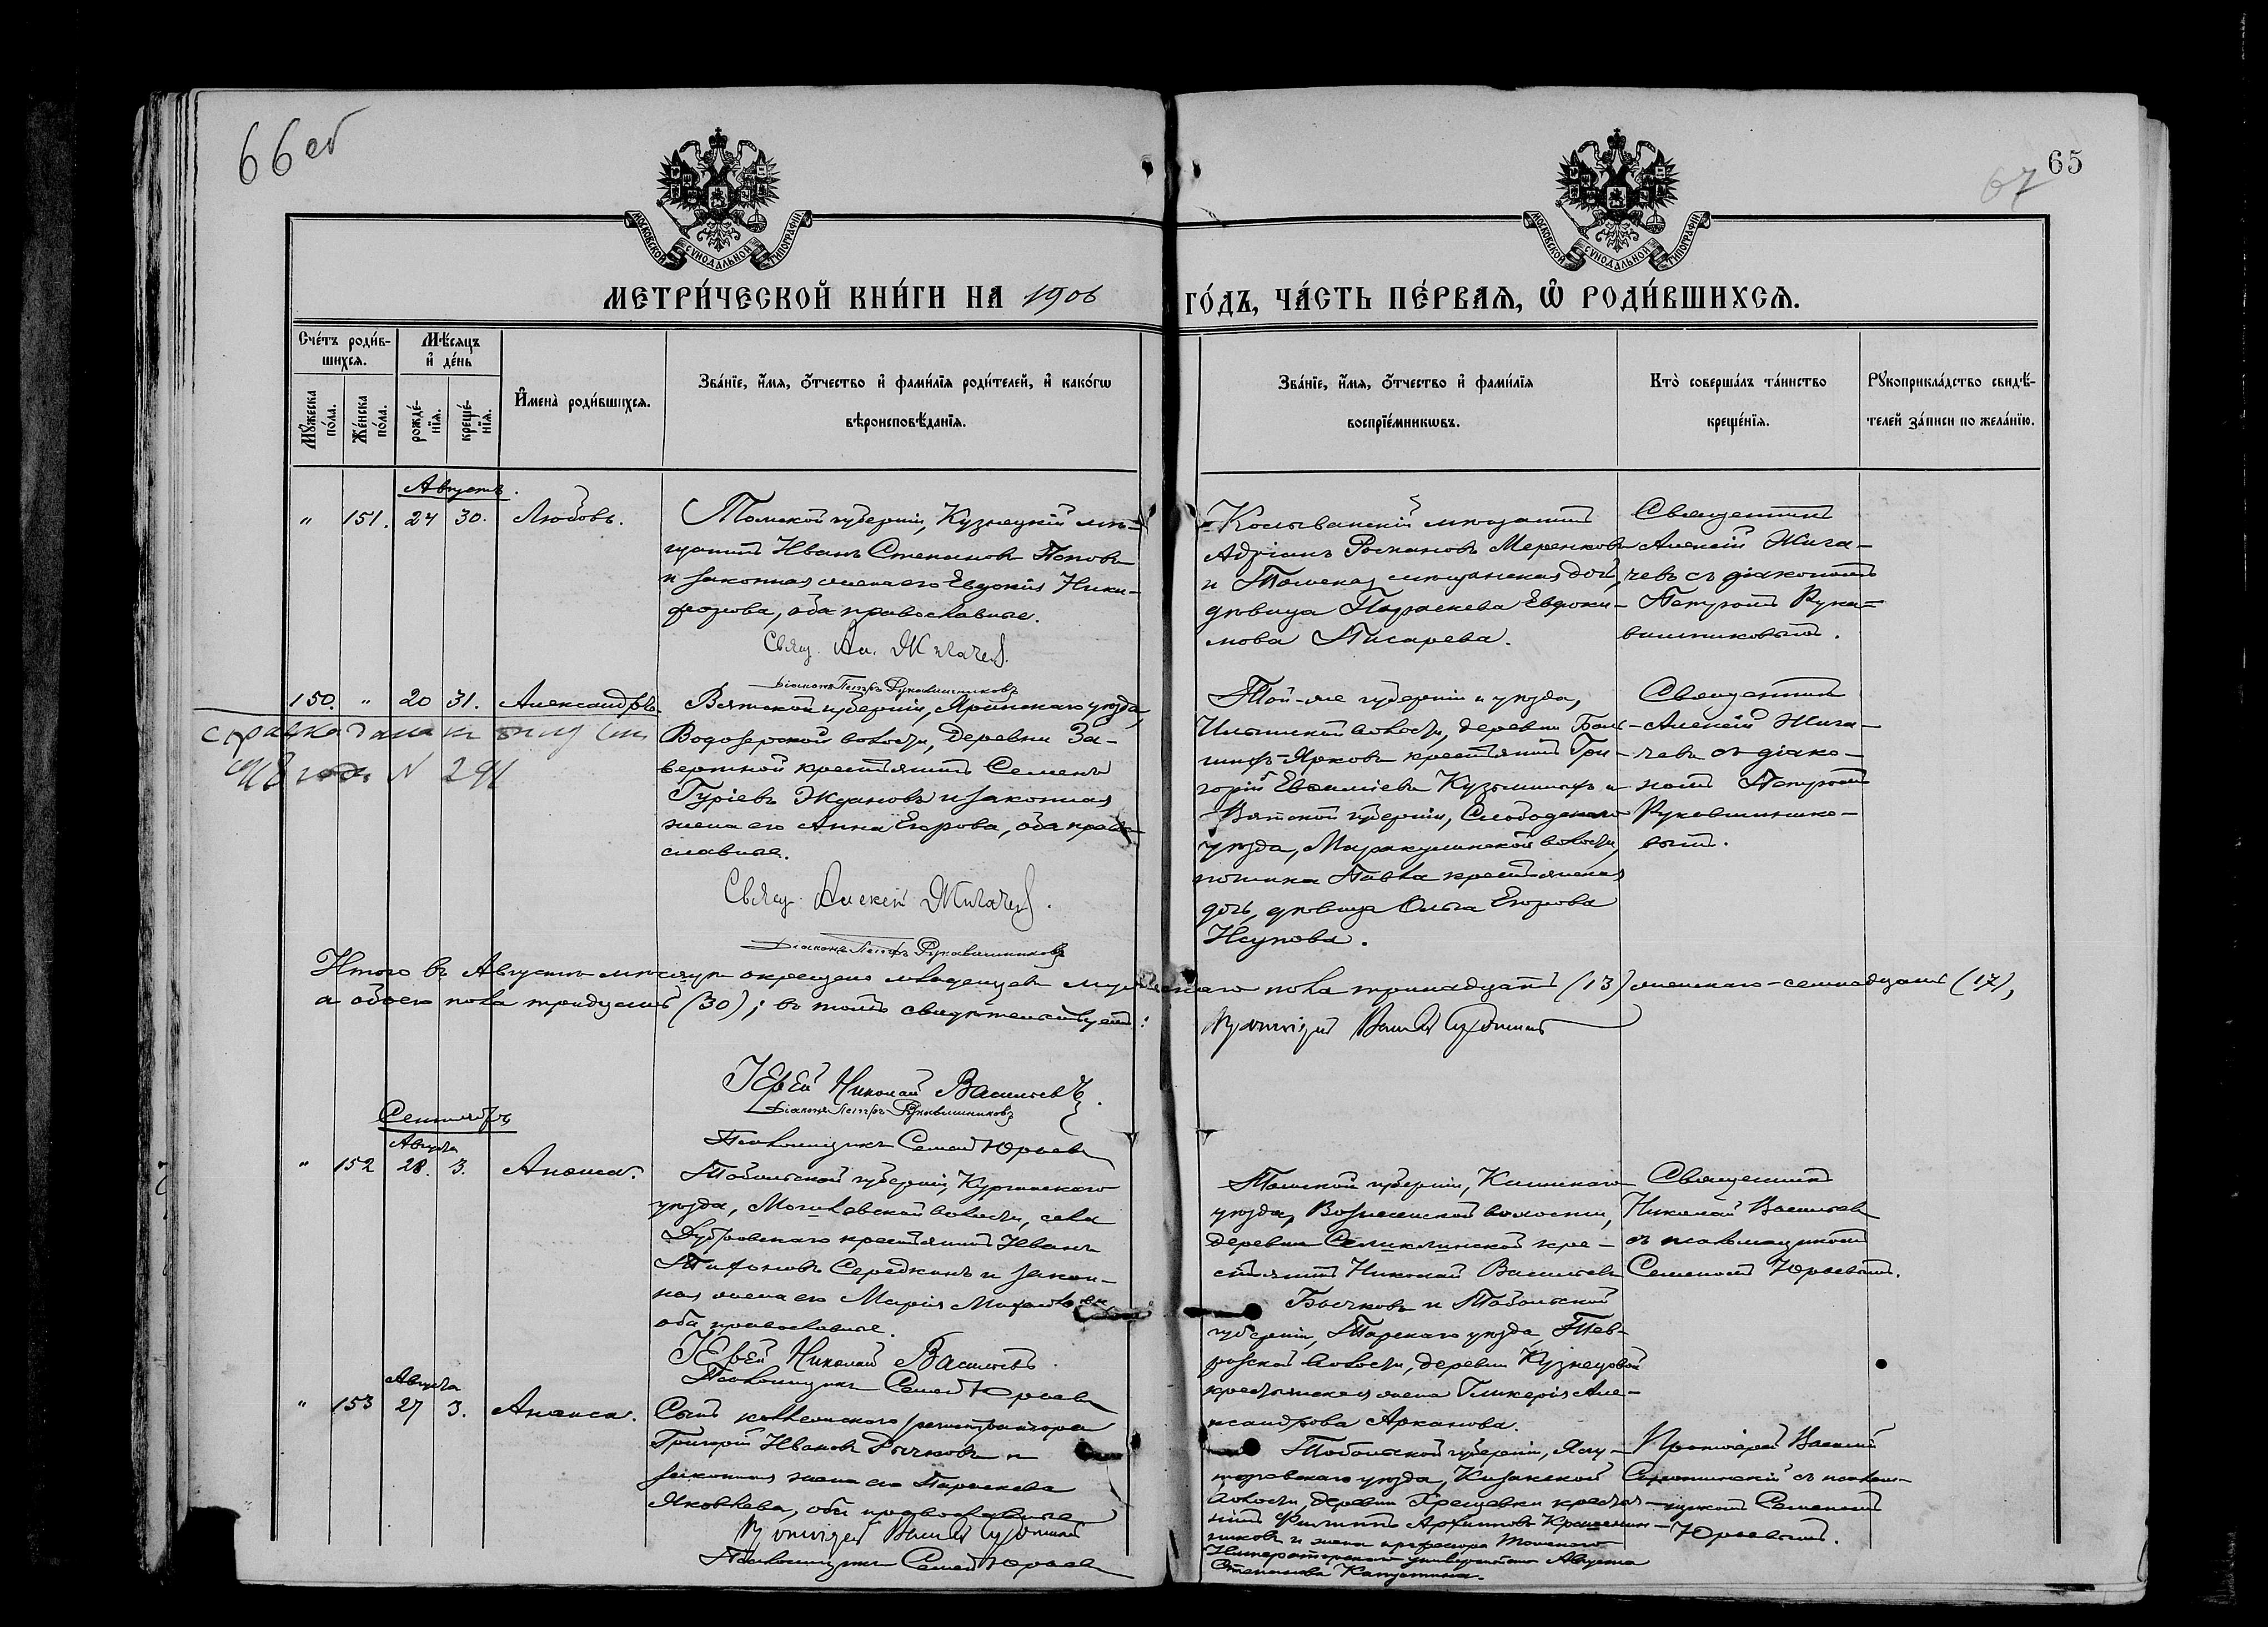 66 об
65
67
МОСКОВСКОЙ СУНОДАЛЬНОЙ ТИПОГРАФІИ
МОСКОВСКОЙ СУНОДАЛЬНОЙ ТИПОГРАФІИ
МЕТРИ́ЧЕСКОЙ КНИ́ГИ НА 1906
ГО́ДЪ, ЧА́СТЬ ПЕ́РВАЯ, Ѿ РОДИ́ВШИХСЯ.
Сче́тъ роди́в-
шихся.
Мѣ́сяцъ
и҆ де́нь
Мꙋ́жеска
по́ла.
Же́нска
по́ла.
рожде́-
нїя.
креще́-
нїя.
И҆мена̀ роди́вшихся.
Зва́нїе, и҆́мя, ѻ҆́тчество и҆ фами́лїя роди́телей, и҆ како́гѡ
вѣроисповѣ́данїя.
Зва́нїе, и҆́мя, ѻ҆́тчество и҆ фами́лїя
воспрїе́мникѡвъ.
Кто̀ соверша́лъ та́инство
креще́нїя.
Рꙋкоприкла́дство свидѣ́-
телей за́писи по жела́нїю.
Августъ.
" 151. 24 30. Любовь.
Томской губерніи, Кузнецкій мѣ-
щанинъ Иванъ Степановъ Поповъ
и законная жена его Евдокія Ники-
форова, оба православные.
Свящ. Ал. Жигачев.
Діаконъ Петръ Рукавишниковъ
Колыванскій мѣщанинъ
Адріанъ Романовъ Меренковъ
и Томская мѣщанская дочь,
дѣвица Параскева Евдоки-
мова Писарева.
Священникъ
Алексій Жига-
чевъ съ діакономъ
Петромъ Рука-
вишниковымъ.
150. " 20 31. Александръ.
справка дана
1918 года N 291
Вятской губерніи, Яранскаго уѣзда,
Водозерской волости, деревни За-
вертной крестьянинъ Семенъ
Гуріевъ Ждановъ и законная
жена его Анна Егорова, оба право-
славные.
Свящ. Алексій Жигачев.
Діаконъ Петръ Рукавишниковъ
Той-же губерніи и уѣзда,
волости, деревни Боль-
шихъ-Ярковъ крестьянинъ Гри-
горій Евфиміевъ Кузьминыхъ и
Вятской губерніи, Слободскаго
уѣзда, Маракулинской волости,
починка Павла крестьянская
дочь, дѣвица Ольга Егорова
Исупова.
Священникъ
Алексій Жига-
чевъ съ діако-
номъ Петромъ
Рукавишнико-
вымъ.
Итого въ Августѣ мѣсяцѣ окрещено младенцевъ мужескаго пола тринадцать (13) женскаго-семнадцать (17),
а обоего пола тридцать (30); въ томъ свидѣтельствуемъ:
Протоіерей Василій Сиротинскій
Іерей Николай Васильевъ.
Діаконъ Петръ Рукавишниковъ
Псаломщикъ Семенъ Юрьевъ
Сентябрь
Августа
" 152 28. 3. Анфиса.
Тобольской губерніи, Курганскаго
уѣзда, Могилевской волости, села
Дубровскаго крестьянинъ Иванъ
Середкинъ и закон-
ная жена его Марія Михайлова,
оба православные.
Іерей Николай Васильевъ.
Псаломщикъ Семенъ Юрьевъ
Томской губерніи, Каинскаго
уѣзда, Вознесенской волости,
деревни кре-
стьянинъ Николай Васильевъ
Бычковъ и Тобольской
губерніи, Тарскаго уѣзда, Тев-
ризской волости, деревни Кузнецовой
крестьянская жена Гликерія Але-
ксандрова Арканова.
Священникъ
Николай Васильевъ
съ псаломщикомъ
Семеномъ Юрьевымъ.
Августа
" 153 27 3. Анфиса.
Сынъ коллежскаго регистратора
Григорій Ивановъ Рычковъ и
законная жена его Параскева
Яковлева, оба православные
Протоіерей Василій Сиротинскій
Псаломщикъ Семенъ Юрьевъ
Тобольской губерніи, Ялу-
торовскаго уѣзда, Кизакской
волости, деревни крестья-
нинъ Филиппъ Архиповъ Крашенин-
никовъ и жена профессора Томскаго
Императорскаго университета Августа
Степанова Капустина.
Протоіерей Василій
Сиротинскій съ псалом-
щикомъ Семеномъ
Юрьевымъ.